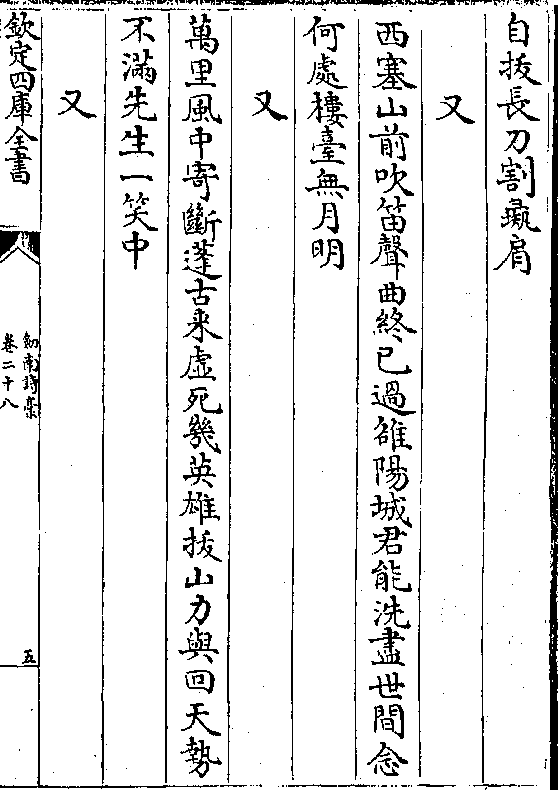 自拔長刀割彘肩
又
西塞山前吹笛聲曲終已過雒陽城君能洗盡世間念
何處樓臺無月明
又
萬里風中寄斷蓬古来虛死幾英雄拔山力與回天勢
不滿先生一笑中
又
欽定四庫全書
劒南詩稾
卷二十八
五